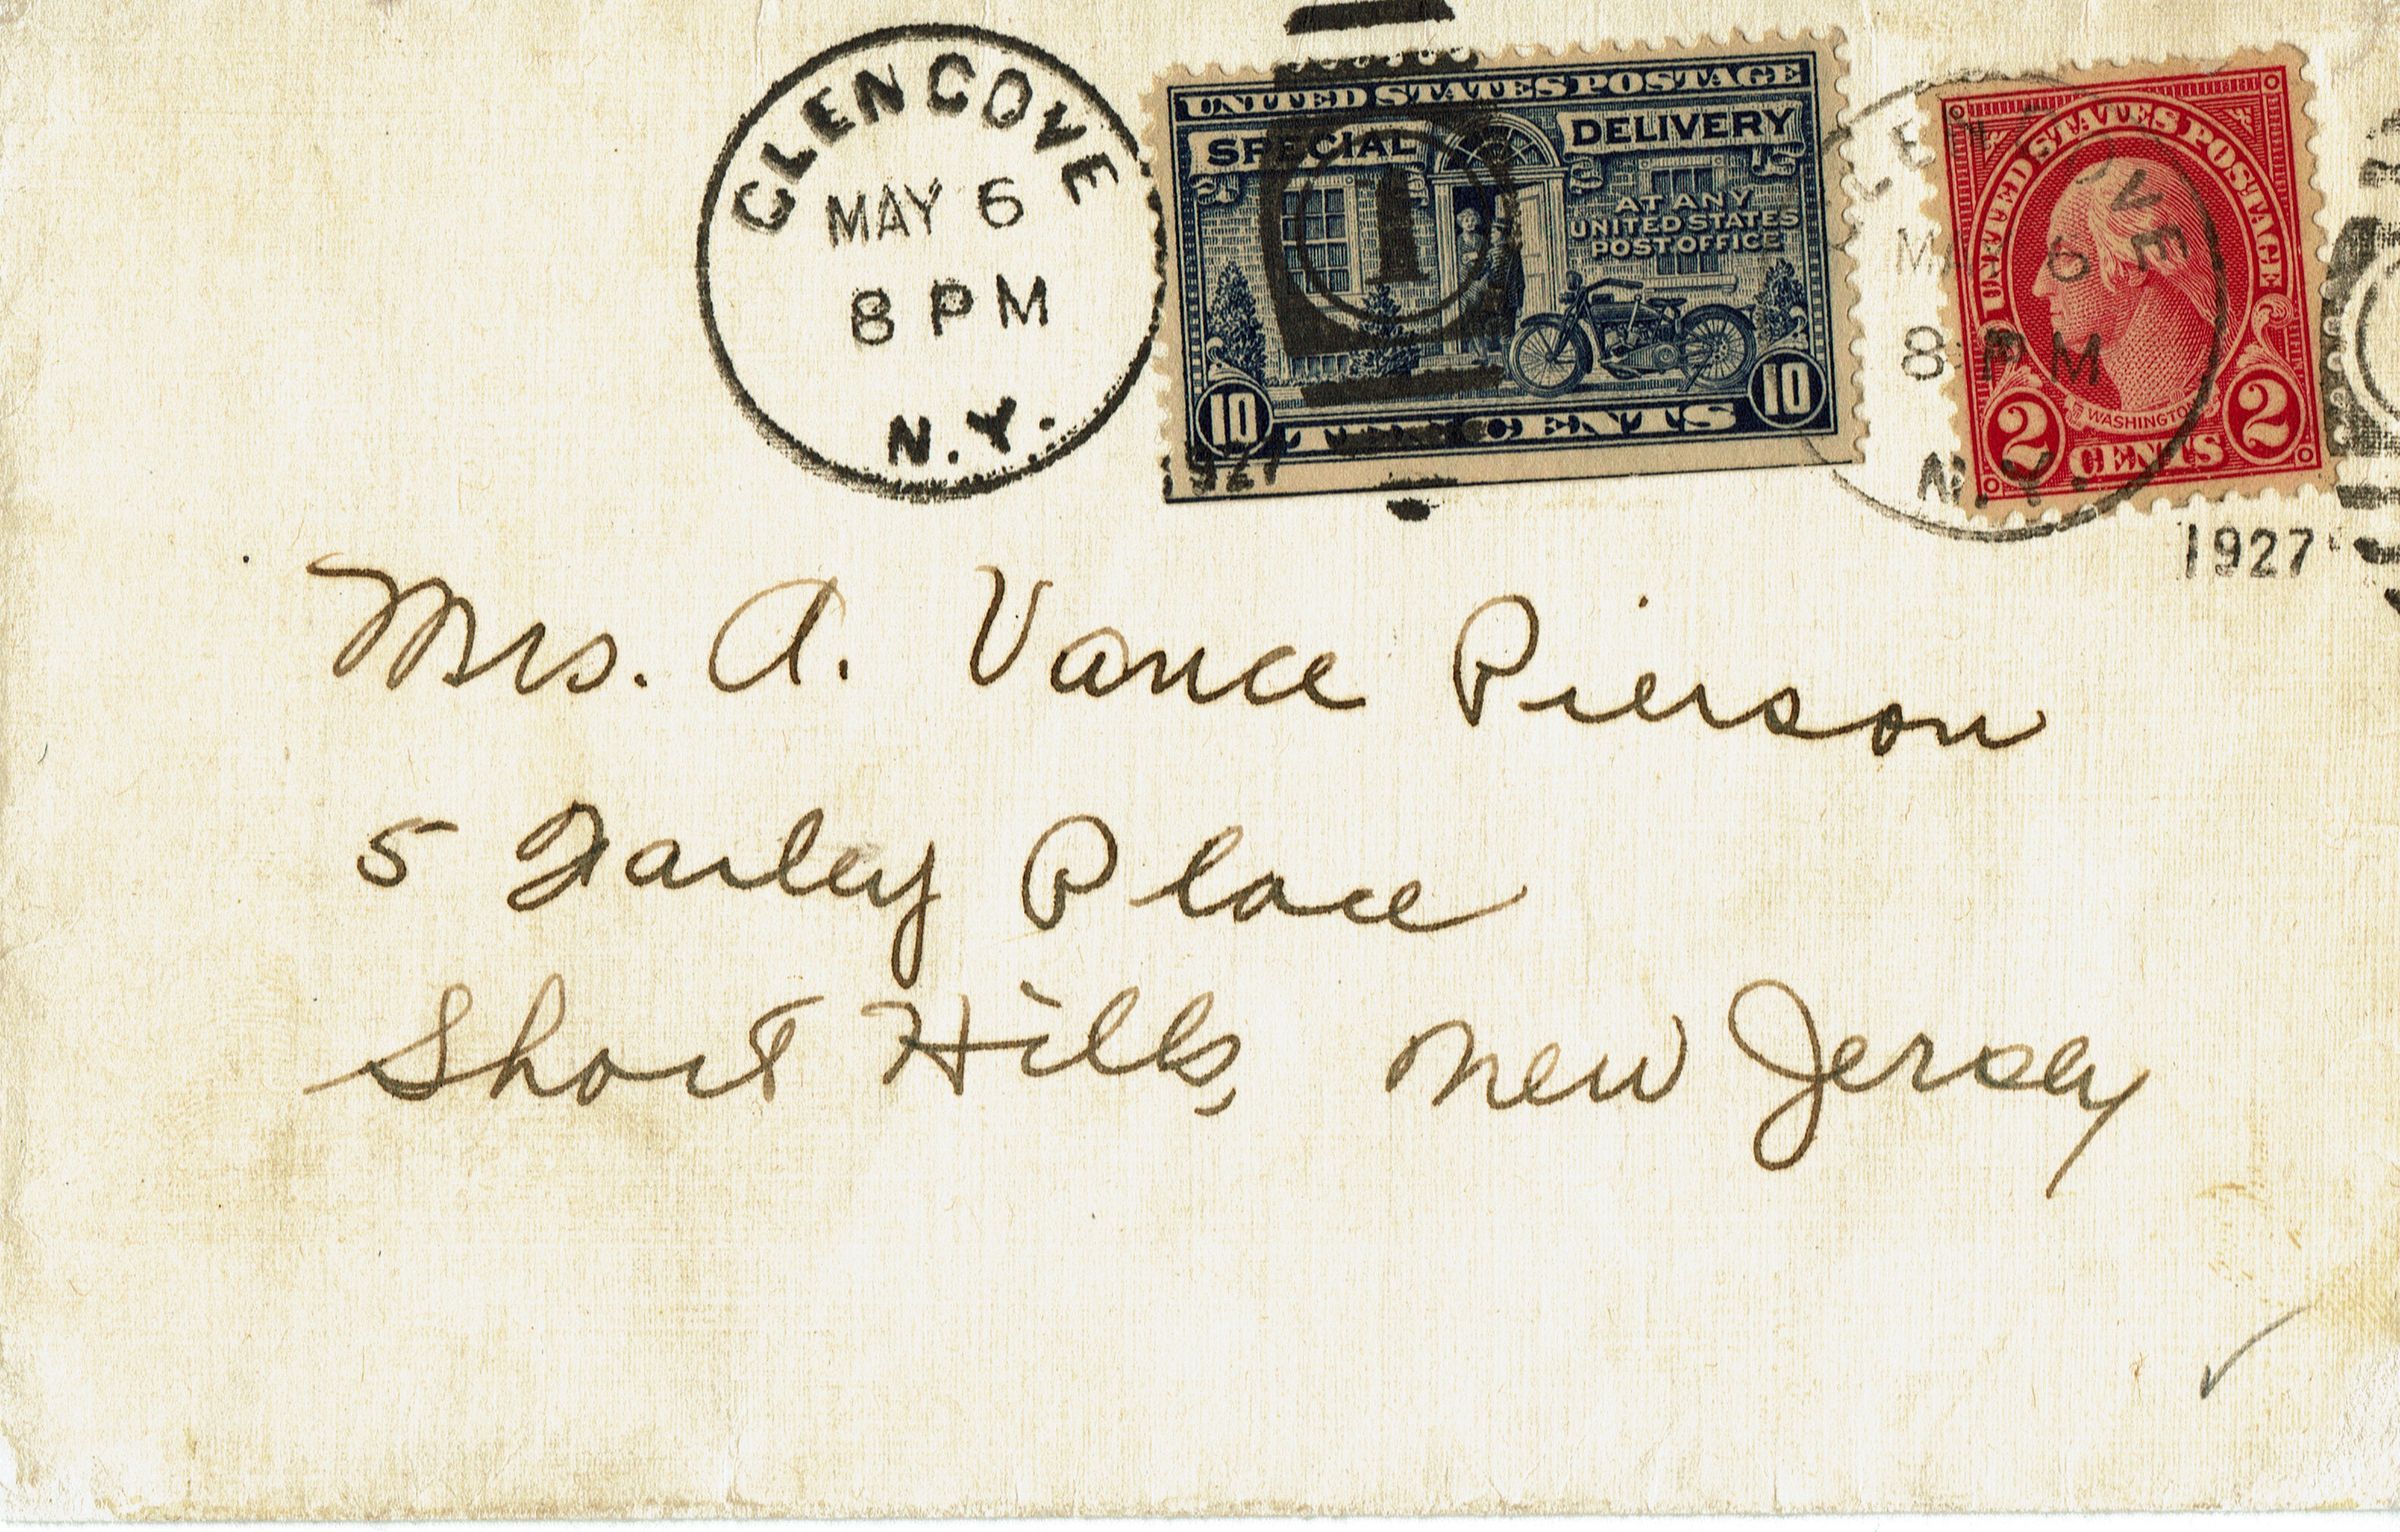 GLEN COVE
MAY 6
8 PM
N.Y.
1927
UNITED STATES POSTAGE
SPECIAL DELIVERY
AT ANY
UNITED STATES
POST OFFICE
10 TEN CENTS 10
1
GLEN COVE
MAY 6
8 PM
N.Y.
1927
UNITED STATES POSTAGE
WASHINGTON
2 CENTS 2
Mrs. A. Vance Pierson
5 Farley Place
Short Hills, New Jersey